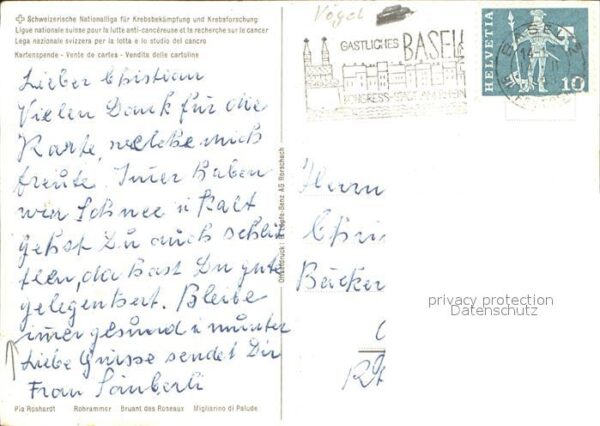 Schweizerische Nationalliga für Krebsbekämpfung und Krebsforschung
Ligue nationale suisse pour la lutte anti-cancéreuse et la recherche sur le cancer
Lega nazionale svizzera per la lotta e lo studio del cancro
Kartenspende - Vente de cartes - Vendita delle cartoline
Lieber Christian
Vielen Dank für die
Karte, welche mich
freute. Imer haben
wir Schnee u Kalt
gehst Du auch schlit
tlen, da hast Du gute
gelegenheit. Bleibe
imer gesund u munter
Liebe Grüsse sendet Dir
Frau
Pia Roshardt Rohrammer Bruant des Roseaux Migliarino di Palude
AG Rorschach
Vögel
GASTLICHES BASEL
KONGRESS-STADT AM RHEIN
HELVETIA
10
BASEL
Herrn
Chri
Bäcker
privacy protection
Datenschutz